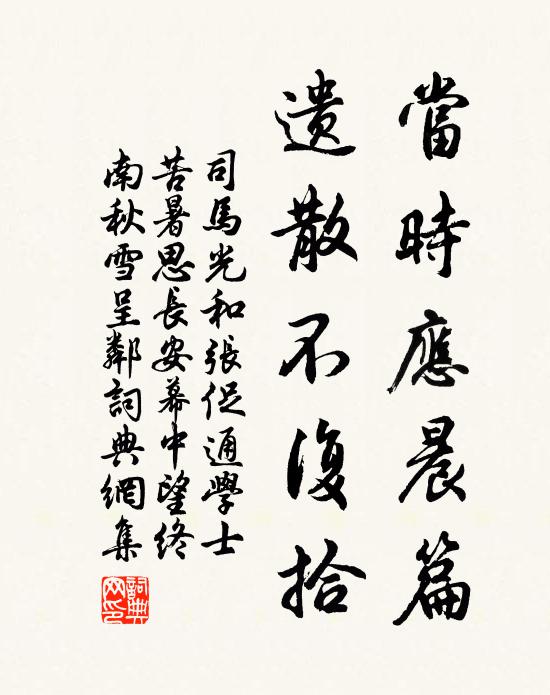 當時應晨篇
遺散不復拾
司馬光和張促通學士
苦暑思長安幕中望終
南秋雪呈鄰詞典網集
詞典
网印